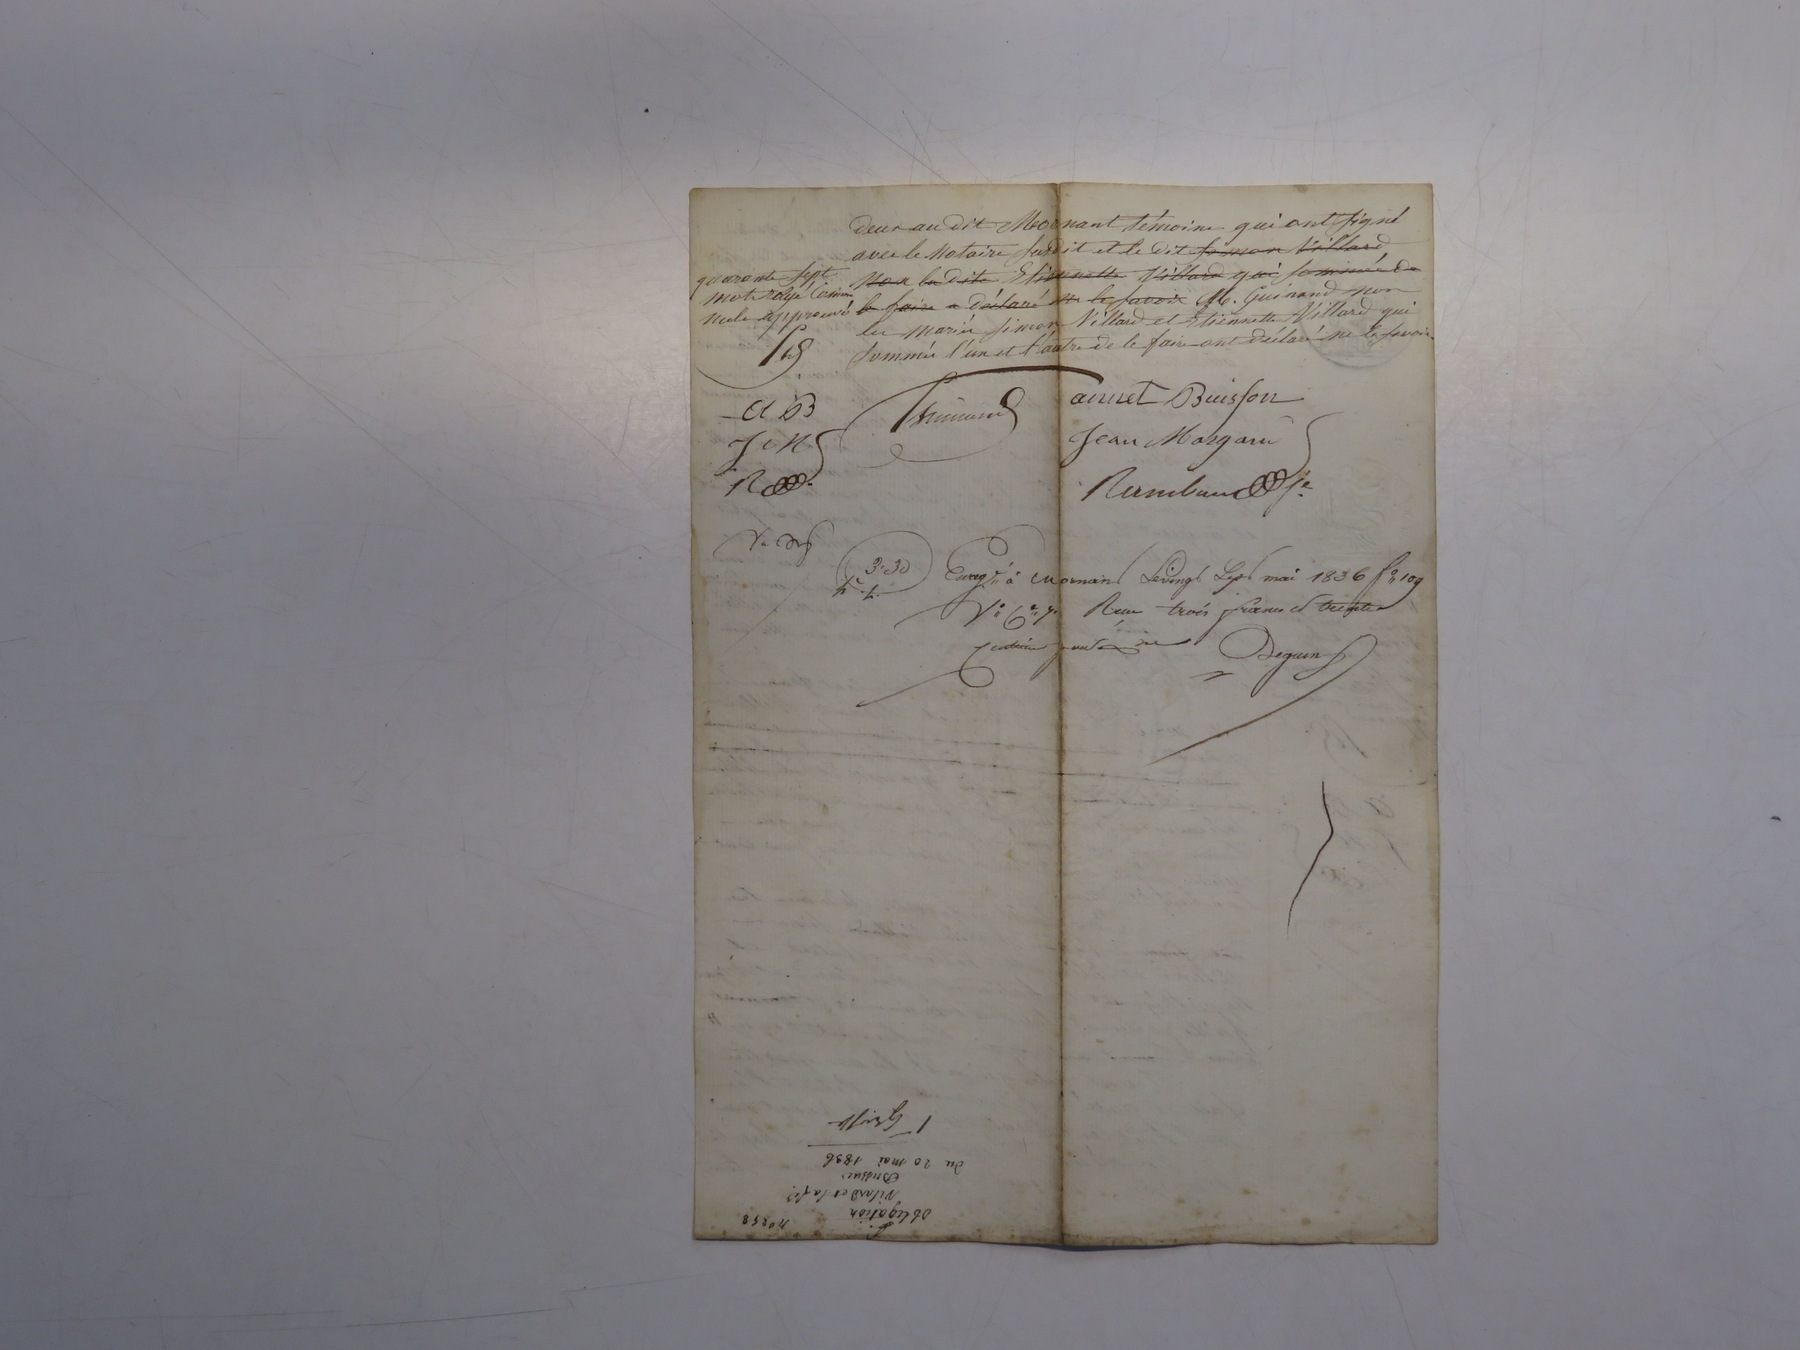 deux au dit Mornant témoins qui ont signé
avec le Notaire susdit et le dit simon Villard
non la dite Etiennette Villard qui sommée de
le faire a déclaré ne le savoir M. Guinand non
les mariés simon Villard et Etiennette Villard qui
sommés l'un et l'autre de le faire ont déclaré ne le savoir
quarante sept
mots rayés comme
nuls approuvé
annet Buisson
A B
Jean Margarit
J M
R
Enregtré à Mornant le vingt sept mai 1836 fo 109
3.30
Vo Ce 7. Reçu trois francs et trente
centimes
Deguin
no 258
obligation
Vilard et sa fe
du 20 mai 1836
1re Grosse